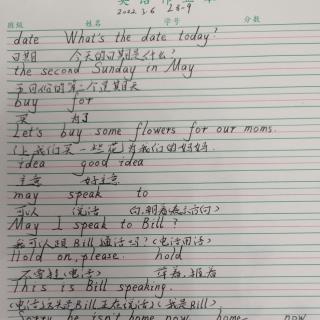 2022.3.6 28-9
班级 姓名 学号 分数
date What's the date today?
日期 今天的日期是什么?
the second Sunday in May
五月份的第二个星期天
buy for
买 为了
Let's buy some flowers for our moms.
(上我们买一些花)为我们的妈妈.
idea good idea
主意 好主意
may speak to
可以 说话 向,朝着(表示方向)
May I speak to Bill?
我可以跟Bill通话吗?(电话用语)
Hold on, please. hold
不要挂(电话)
This is Bill speaking.
Bill正在说话)(我是Bill).
he isn't home now. home now